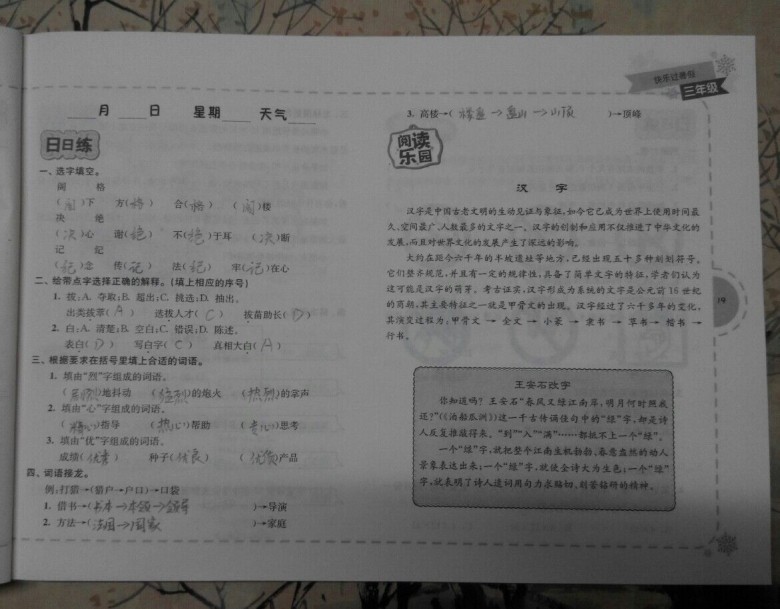 快乐过暑假
三年级
月 日 星期 天气
日日练
一、选字填空。
阁 格
(阁)下 方(格) 合(格) (阁)楼
决 绝
(决)心 谢(绝) 不(绝)于耳 (决)断
记 纪
(纪)念 传(记) 法(纪) 牢(记)在心
二、给带点字选择正确的解释。(填上相应的序号)
1. 拔:A. 夺取;B. 超出;C. 挑选;D. 抽出。
出类拔萃(A) 选拔人才(C) 拔苗助长(D)
2. 白:A. 清楚;B. 空白;C. 错误;D. 陈述。
表白(D) 写白字(C) 真相大白(A)
三、根据要求在括号里填上合适的词语。
1. 填由“烈”字组成的词语。
(剧烈)地抖动 (猛烈)的炮火 (热烈)的掌声
2. 填由“心”字组成的词语。
(精心)指导 (热心)帮助 (专心)思考
3. 填由“优”字组成的词语。
成绩(优秀) 种子(优良) (优质)产品
四、词语接龙。
例:打猎→(猎户→户口)→口袋
1. 借书→(书本→本领→领导 )→导演
2. 方法→(法国→国家 )→家庭
3. 高楼→(楼盘→盘山→山顶 )→顶峰
阅读
乐园
汉 字
汉字是中国古老文明的生动见证与象征,如今它已成为世界上使用时间最
久、空间最广、人数最多的文字之一。汉字的创制和应用不仅推进了中华文化的
发展,而且对世界文化的发展产生了深远的影响。
大约在距今六千年的半坡遗址等地方,已经出现五十多种刻划符号。
它们整齐规范,并且有一定的规律性,具备了简单文字的特征,学者们认为
这可能是汉字的萌芽。考古证实,汉字形成为系统的文字是公元前16世纪
的商朝,其主要特征之一就是甲骨文的出现。汉字经过了六千多年的变化,
其演变过程为:甲骨文 → 金文 → 小篆 → 隶书 → 草书 → 楷书 →
行书。
王安石改字
你知道吗?王安石“春风又绿江南岸,明月何时照我
还?”(《泊船瓜洲》)这一千古传诵佳句中的“绿”字,却是诗
人反复推敲得来。“到”“入”“满”……都抵不上一个“绿”。
一个“绿”字,就把整个江南生机勃勃、春意盎然的动人
景象表达出来;一个“绿”字,就使全诗大为生色;一个“绿”
字,就表明了诗人遣词用句力求锦切、刻苦锦研的精神。
19